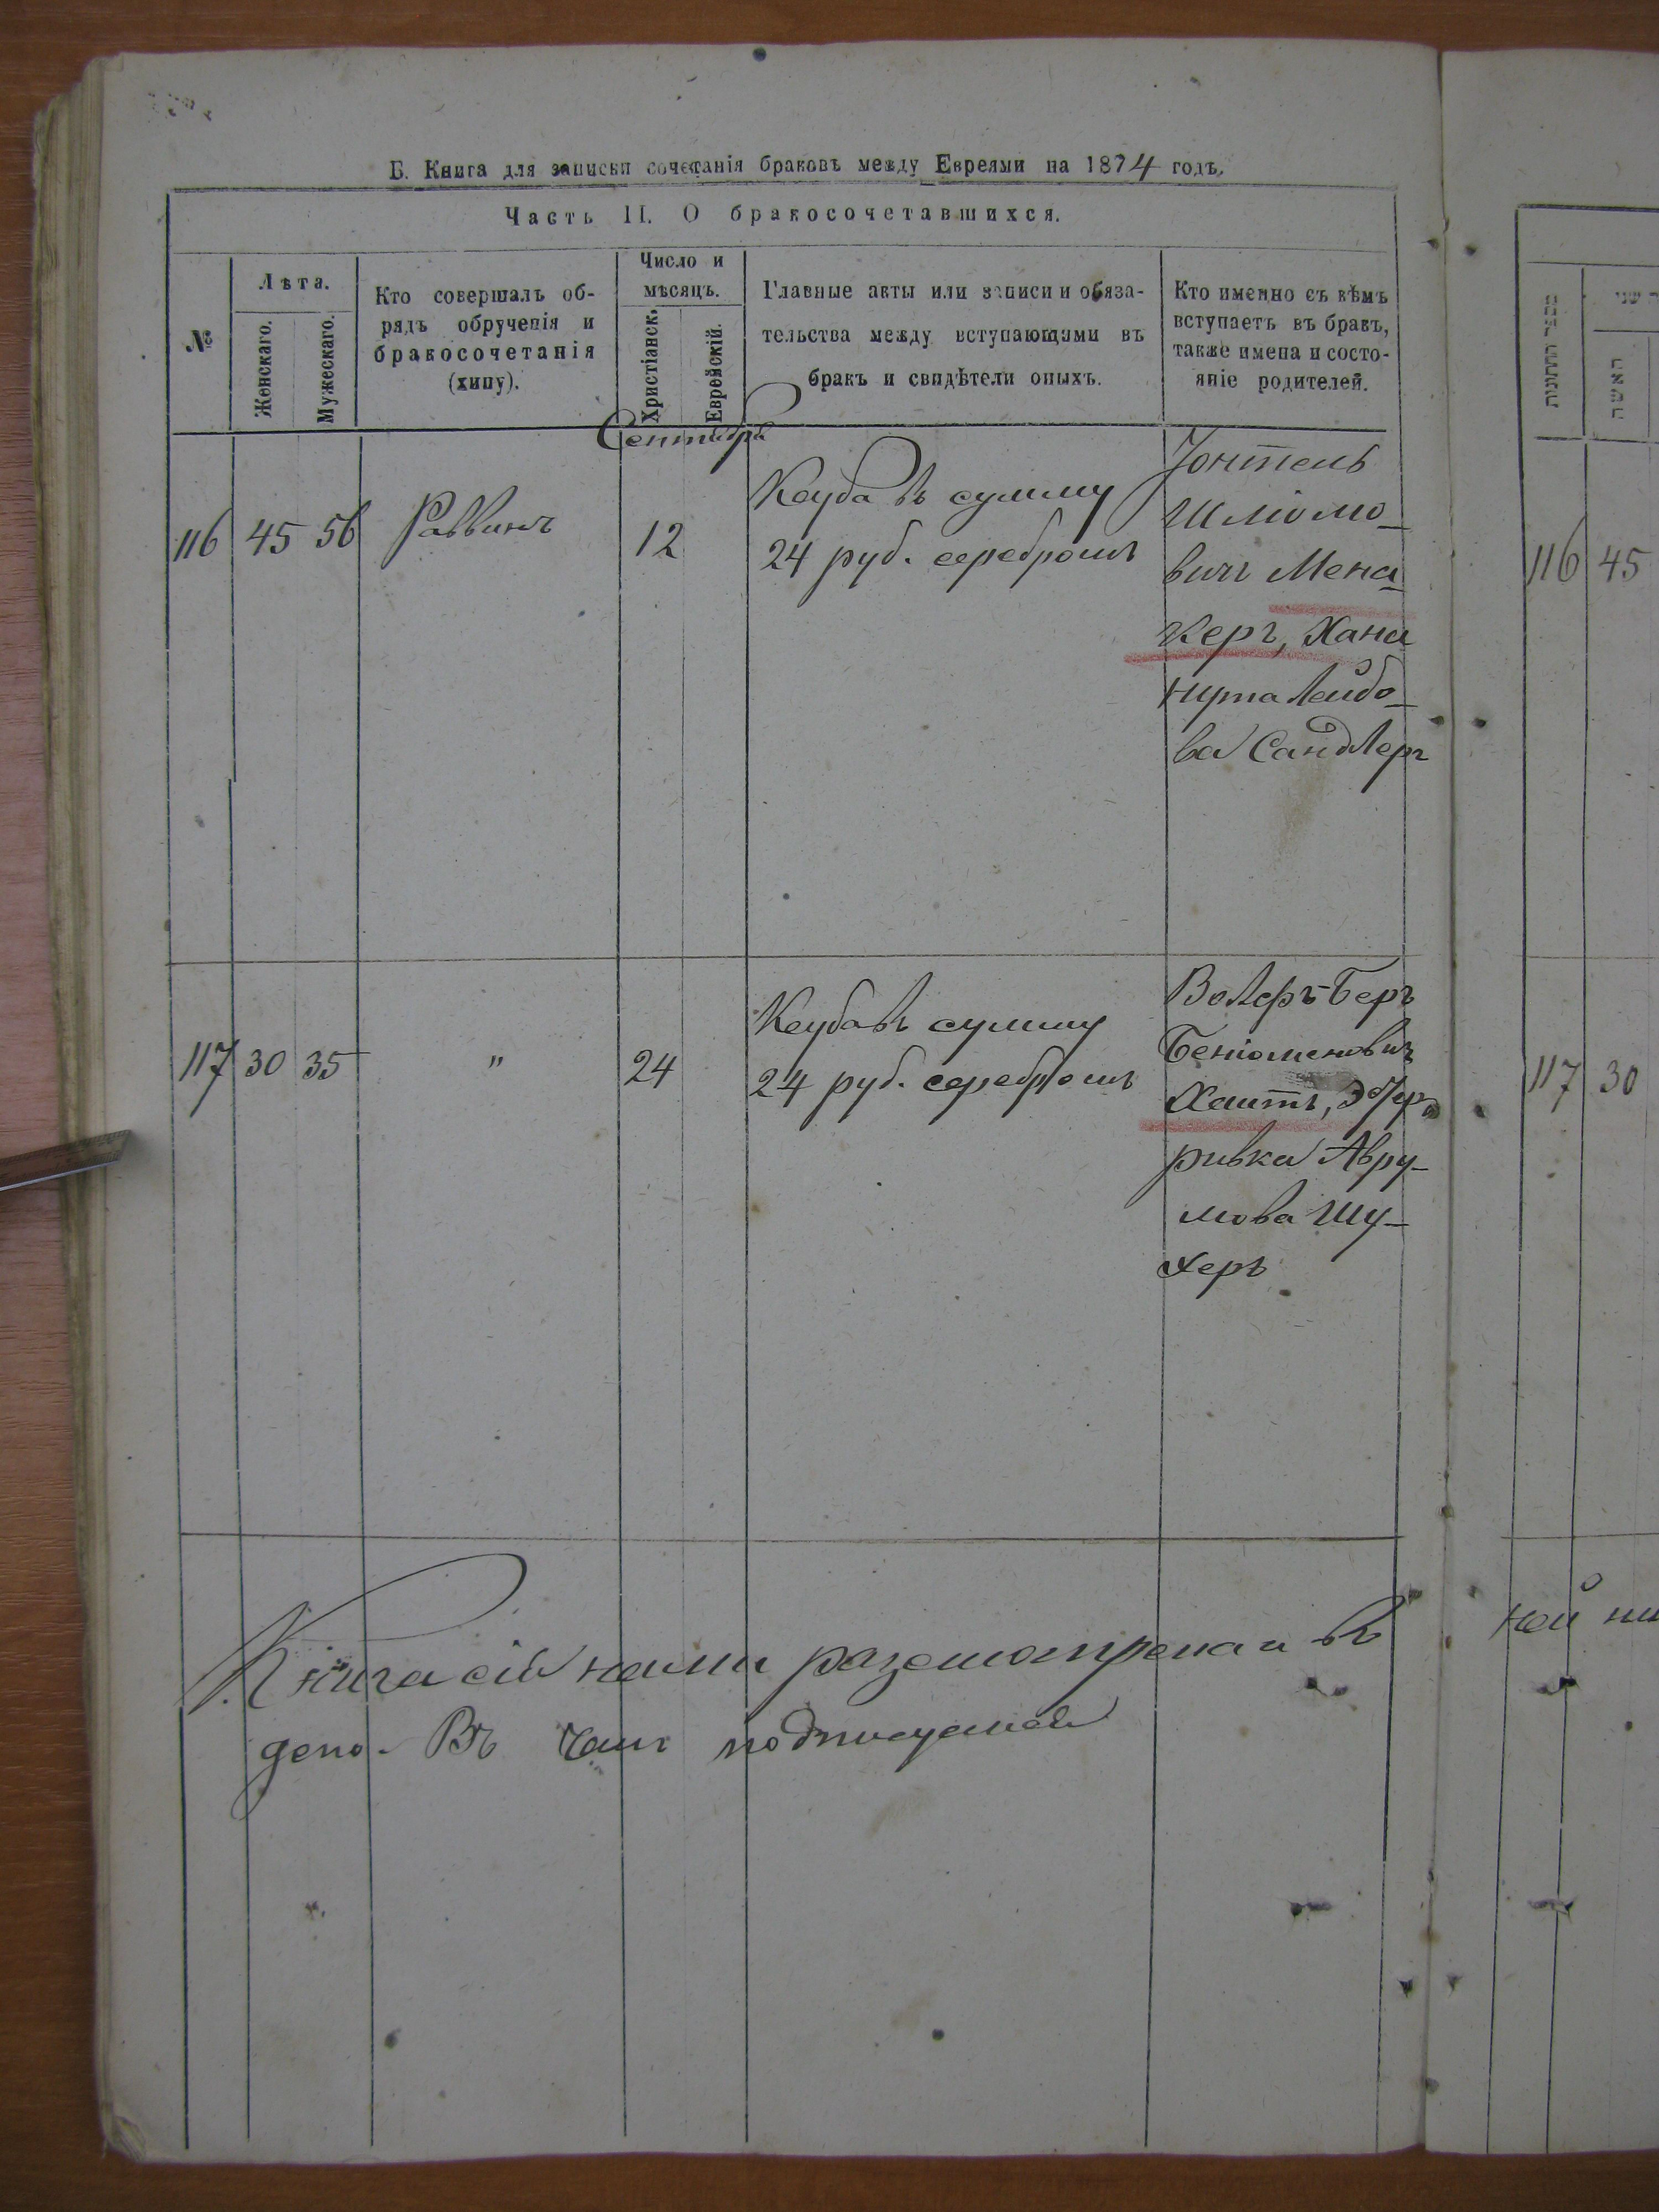 Б. Книга для записки сочетанія браковъ между Евреями на 1874 годъ.
Часть II. О бракосочетавшихся.
№
Лѣта.
Женскаго.
Мужескаго.
Кто совершалъ об-
рядъ обрученія и
бракосочетанія
(хипу).
Число и
мѣсяцъ.
Христіанск.
Еврейскій.
Главные акты или записи и обяза-
тельства между вступающими въ
бракъ и свидѣтели оныхъ.
Кто именно съ кѣмъ
вступаетъ въ бракъ,
также имена и состо-
яніе родителей.
Сентября
116 45 56 Раввинъ 12
Кеуба въ сумму
24 руб. серебромъ
Іонтель
Шліомо-
вичъ Мена-
керъ, Хана
Нута Лейбо-
ва Сандлеръ
117 30 35 " 24
Кеуба въ сумму
24 руб. серебромъ
Волфъ-Беръ
Беніоменовичъ
Хаитъ,
ривка Авру-
мова Шу-
херъ
Книга сія нами разсмотрена и въ
дено. Въ чемъ подписуемся
האשה
116 45
117 30
ней